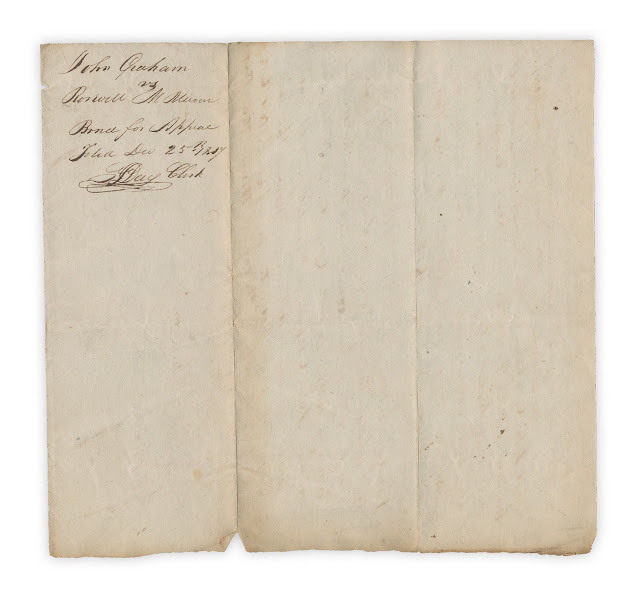 John Graham
vs
Roswell M
Bond for Appeal
Filed Dec 25th
Day Clerk